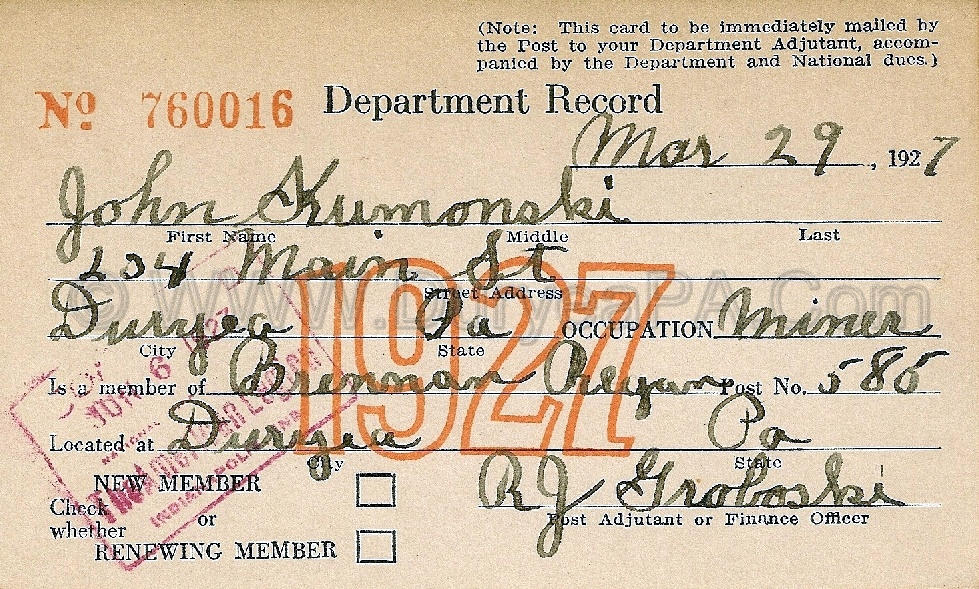 (Note: This card to be immediately mailed by
the Post to your Department Adjutant, accom-
panied by the Department and National dues.)
No 760016 Department Record
Mar 29, 1927
John Kumonski
First Name Middle Last
204 Main St
Street Address
© www.DuryeaPA.Com
1927
Duryea Pa OCCUPATION Miner
City State
Is a member of Brennan Regan Post No. 585
Located at Duryea Pa
City State
NEW MEMBER
Check
whether or
RENEWING MEMBER
R J Groboski
Post Adjutant or Finance Officer
NATIONAL
THE AMERICAN LEGION
INDIANAPOLIS